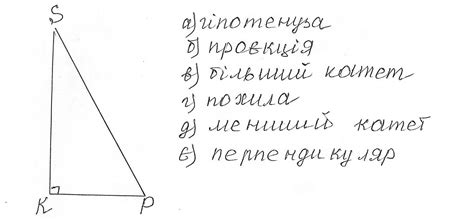 S
а) гіпотенуза
б) проекція
в) більший катет
г) похила
д) менший катет
є) перпендикуляр
K P